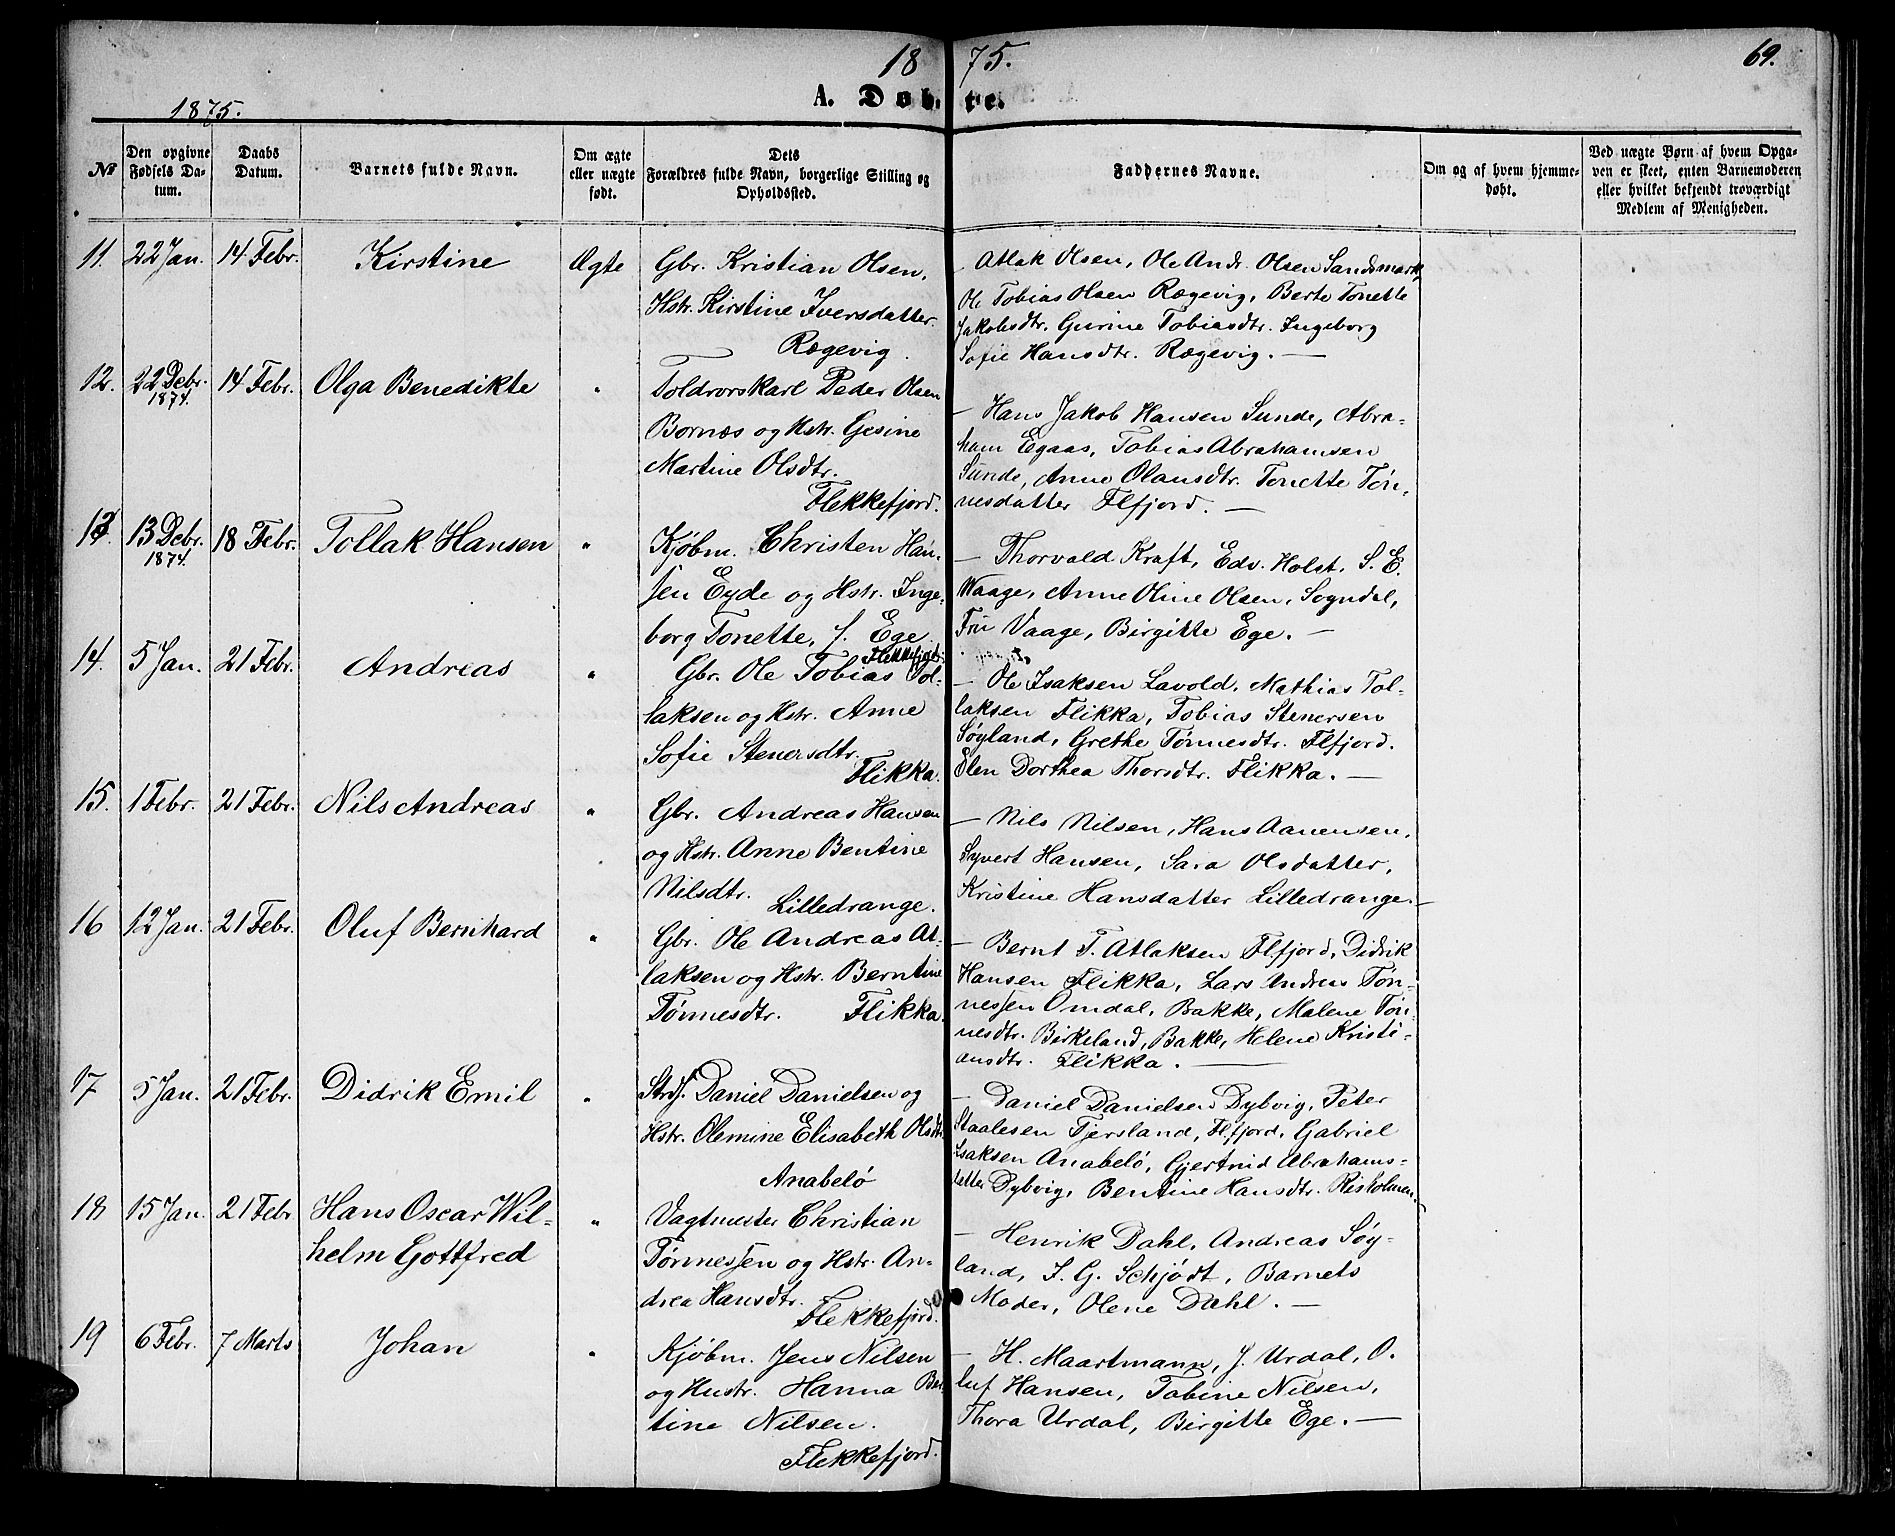 1875.
69.
A. Døbte.
1875.
№
Den opgivne Fødsels Datum.
Daabs Datum.
Barnets fulde Navn.
Om ægte eller uægte født.
Dets Forældres fulde Navn, borgerlige Stilling og Opholdssted.
Faddernes Navne.
Om og af hvem hjemmedøbt.
Ved uægte Børn af hvem Opgaven er skeet, enten Barnemoderen eller hvilket bekjendt troværdigt Medlem af Menigheden.
11. 22 Jan. 14 Febr. Kirstine Ægte
Gbr. Kristian Olsen,
Hstr. Kirstine Iversdatter.
Rægevig.
Atlak Olsen, Ole Andr. Olsen Sandsmark,
Ole Tobias Olsen Rægevig, Berte Tonette
Jakobsdtr. Gurine Tobiasdtr. Ingeborg
Sofie Hansdtr. Rægevig. —
12. 22 Debr. 1874. 14 Febr. Olga Benedikte "
Toldrorskarl Peder Olsen
Bornæs og Hstr. Gesine
Martine Olsdtr.
Flekkefjord.
— Hans Jakob Hansen Sunde, Abra-
ham Egaas, Tobias Abrahamsen
Sunde, Anne Olausdtr. Tonette Tøn-
nesdatter Flfjord. —
13. 13 Debr. 1874. 18 Febr. Tollak Hansen "
Kjøbm. Christen Han-
sen Eyde og Hstr. Inge-
borg Tonette, f. Ege
Flekkefjord.
— Thorvald Kraft, Edv. Holst. S. E.
Waage, Anne Oline Olsen, Sogndal,
Fru Vaage, Birgitte Ege. —
14. 5 Jan. 21 Febr. Andreas "
Gbr. Ole Tobias Tol-
laksen og Hstr. Anne
Sofie Stenersdtr.
Flikka.
— Ole Isaksen Lavold, Mathias Tol-
laksen Flikka, Tobias Stenersen
Søyland, Grethe Tønnesdtr. Flfjord.
Elen Dorthea Thorsdtr. Flikka. —
15. 1 Febr. 21 Febr. Nils Andreas "
Gbr. Andreas Hansen
og Hstr. Anne Bentine
Nilsdtr.
Lilledrange.
— Nils Nilsen, Hans Aanensen,
Syvert Hansen, Sara Olsdatter,
Kristine Hansdatter Lilledrange. —
16 12 Jan. 21 Febr. Oluf Bernhard "
Gbr. Ole Andreas At-
laksen og Hstr. Berntine
Tønnesdtr. Flikka.
— Bernt T. Atlaksen Flfjord, Didrik
Hansen Flikka, Lars Andreas Tøn-
nessen Omdal, Bakke, Malene Tøn-
nesdtr. Birkeland, Bakke, Helene Kristi-
ansdtr. Flikka. —
17 5 Jan. 21 Febr. Didrik Emil "
Strds. Daniel Danielsen og
Hstr. Olemine Elisabeth Olsdtr.
Anabelø
— Daniel Danielsen Dybvig, Peter
Staalesen Tjersland, Flfjord, Gabriel
Isaksen Anabelø, Gjertrud Abrahams-
datter Dybvig, Bentine Hansdtr. Risholmen.
18 15 Jan. 21 Febr Hans Oscar Wil- "
helm Gottfred
Vagtmester Christian
Tønnessen og Hstr. An-
drea Hansdtr.
Flekkefjord.
— Henrik Dahl, Andreas Søy-
land, J. G. Schjødt, Barnets
Moder, Olene Dahl. —
19 6 Febr. 7 Marts Johan "
Kjøbm. Jens Nilsen
og Hustr. Hanna Ber-
tine Nilsen.
Flekkefjord.
— H. Maartmann, J. Urdal, O-
luf Hansen, Tobine Nilsen,
Thora Urdal, Birgitte Ege. —